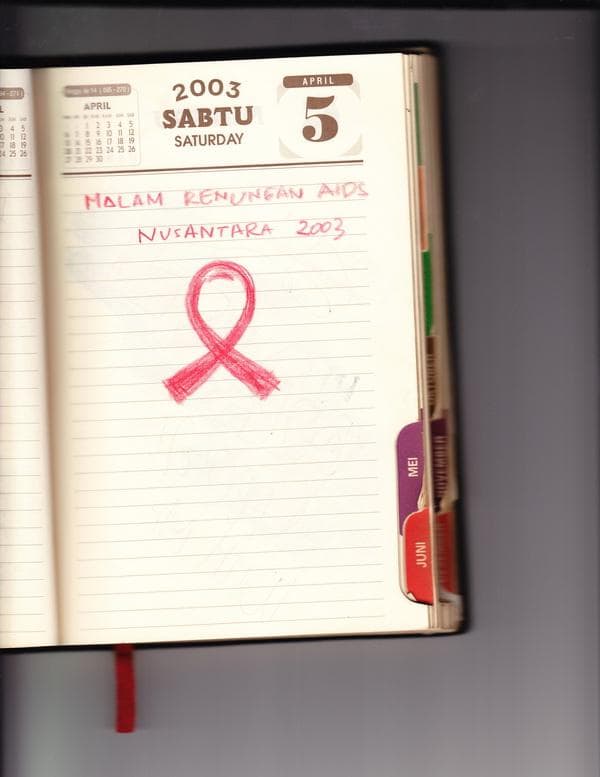 2003
SABTU
SATURDAY
APRIL
5
APRIL
1 2 3 4 5
6 7 8 9 10 11 12
13 14 15 16 17 18 19
20 21 22 23 24 25 26
27 28 29 30
MALAM RENUNGAN AIDS
NUSANTARA 2003
MEI
JUNI